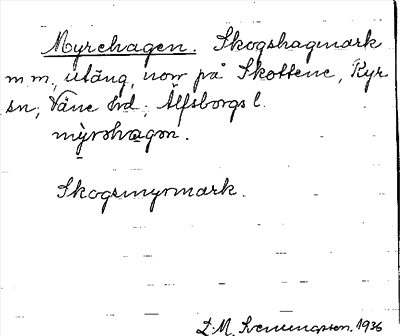 Myrehagen. Skogshagmark
m m, utäng, norr på Skottene, Kyr
sn; Väne hd; Älfsborgs l.
myrshagen.
Skogsmyrmark.
D. M. Svenungsson. 1936